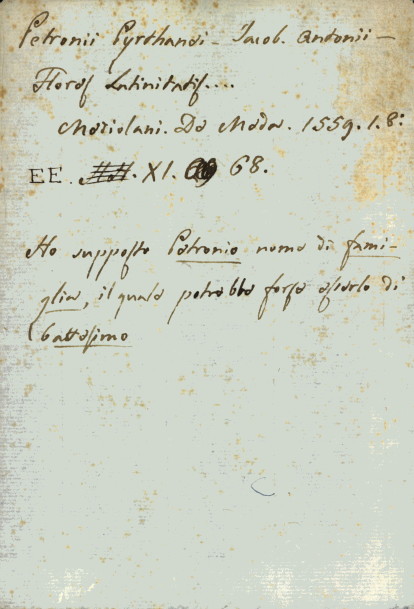 Petronii Pyrthandi - Jacob. Antonii -
Flores Latinitatis....
Mediolani. De Meda. 1559. 1. 8:
EE. XI. 68.
Ho supposto Petronio nome di fami-
glia, il quale potrebbe forse esserlo di
battesimo